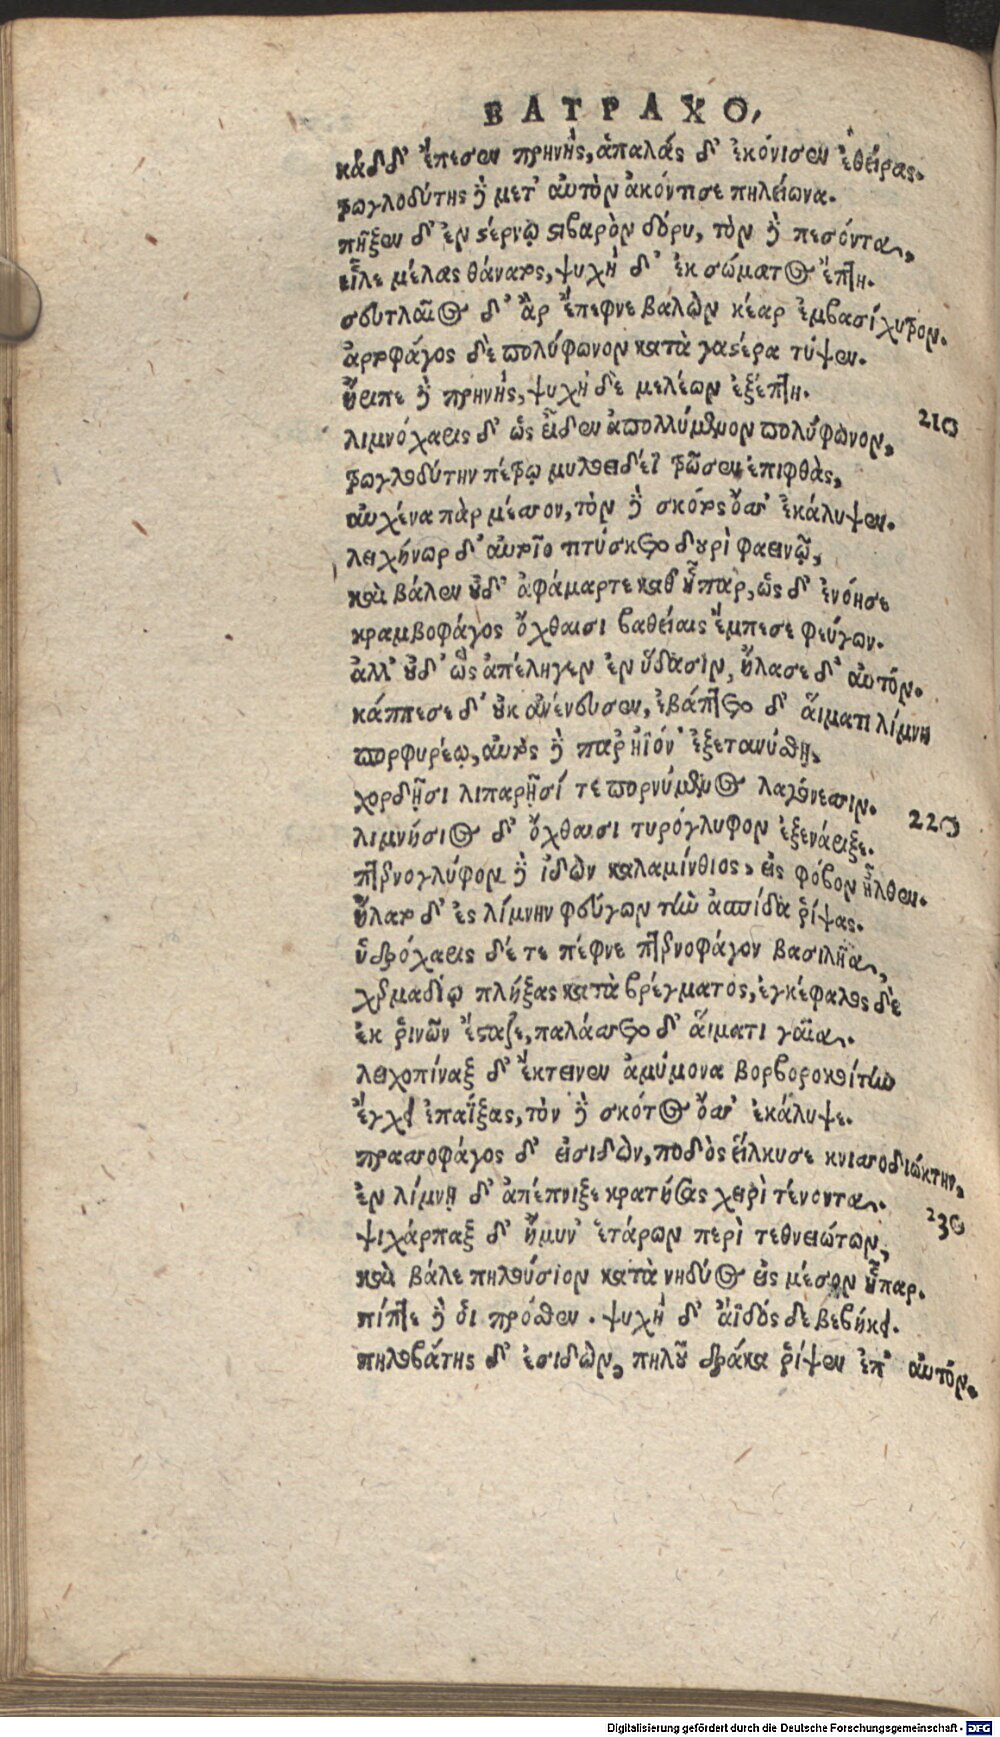 ΒΑΤΡΑΧΟ,
κὰδδ' ἔπεσεν πρηνὴς, ἁπαλὰς δ' ἐκόνισεν ἐθείρας.
τρωγλοδύτης δὲ μετ' αὐτὸν ἀκόντισε πηλείωνα.
πῆξεν δ' ἐν στέρνῳ στιβαρὸν δόρυ, τὸν δὲ πεσόντα,
εἷλε μέλας θάνατος, ψυχὴ δ' ἐκ σώματος ἔπτη.
σευτλαῖος δ' ἂρ ἔπεφνε βαλὼν κέαρ ἐμβασίχυτρον.
ἀρτοφάγος δὲ πολύφωνον κατὰ γαστέρα τύψεν.
ἤριπε δὲ πρηνὴς, ψυχὴ δὲ μελέων ἐξέπτη.
λιμνόχαρις δ' ὡς εἶδεν ἀπολλύμενον πολύφωνον, 210
τρωγλοδύτην πέτρῳ μυλοειδέϊ τρῶσεν ἐπιφθὰς,
αὐχένα πὰρ μέσσον, τὸν δὲ σκότος ὄσσ' ἐκάλυψεν.
λειχήνωρ δ' αὐτοῖο τιτύσκετο δουρὶ φαεινῷ,
καὶ βάλεν οὐδ' ἀφάμαρτε καθ' ἧπαρ, ὡς δ' ἐνόησε
κραμβοφάγος ὄχθαισι βαθείαις ἔμπεσε φεύγων.
ἀλλ' οὐδ' ὣς ἀπέληγεν ἐν ὕδασιν, ἤλασε δ' αὐτόν.
κάππεσε δ' οὐκ ἀνένευσεν, ἐβάπτετο δ' αἵματι λίμνη
πορφυρέῳ, αὐτὸς δὲ παρ' ἠϊόν' ἐξετανύσθη,
χορδῇσι λιπαρῇσί τε πορνύμενος λαγόνεσσιν. 220
λιμνήσιος δ' ὄχθαισι τυρόγλυφον ἐξενάριξε.
πτερνογλύφον δὲ ἰδὼν καλαμίνθιος, εἰς φόβον ἦλθεν.
ἥλατο δ' ἐς λίμνην φεύγων τὴν ἀσπίδα ῥίψας.
ὑδρόχαρις δέ τε πέφνε πτερνοφάγον βασιλῆα,
χερμαδίῳ πλήξας κατὰ βρέγματος, ἐγκέφαλος δὲ
ἐκ ῥινῶν ἔσταζε, παλάσσετο δ' αἵματι γαῖα.
λειχοπίναξ δ' ἔκτεινεν ἀμύμονα βορβοροκοίτην
ἔγχει ἐπαΐξας, τὸν δὲ σκότος ὄσσ' ἐκάλυψε.
πρασσοφάγος δ' εἰσιδὼν, ποδὸς εἵλκυσε κνισσοδιώκτην,
ἐν λίμνῃ δ' ἀπέπνιξε κρατήσας χειρὶ τένοντα. 230
ψιχάρπαξ δ' ἤμυν' ἑτάρων περὶ τεθνειώτων,
καὶ βάλε πηλούσιον κατὰ νηδύος εἰς μέσον ἧπαρ.
πίπτε δὲ οἱ πρόσθεν. ψυχὴ δ' ἀϊδόσδε βεβήκει.
πηλοβάτης δ' ἐσιδὼν, πηλοῦ δράκα ῥίψεν ἐπ' αὐτόν.
Digitalisierung gefördert durch die Deutsche Forschungsgemeinschaft - DFG